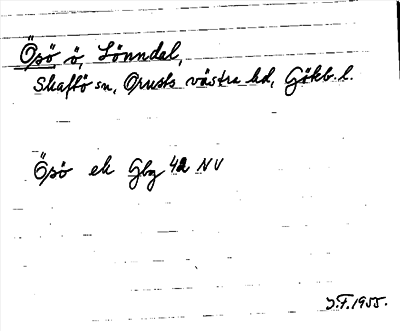 Ösö ö, Lönndal,
Skaftö sn, Orusts västra hd, Götbb. l.
Ösö ek Gbg 42 NV
J.F. 1955.